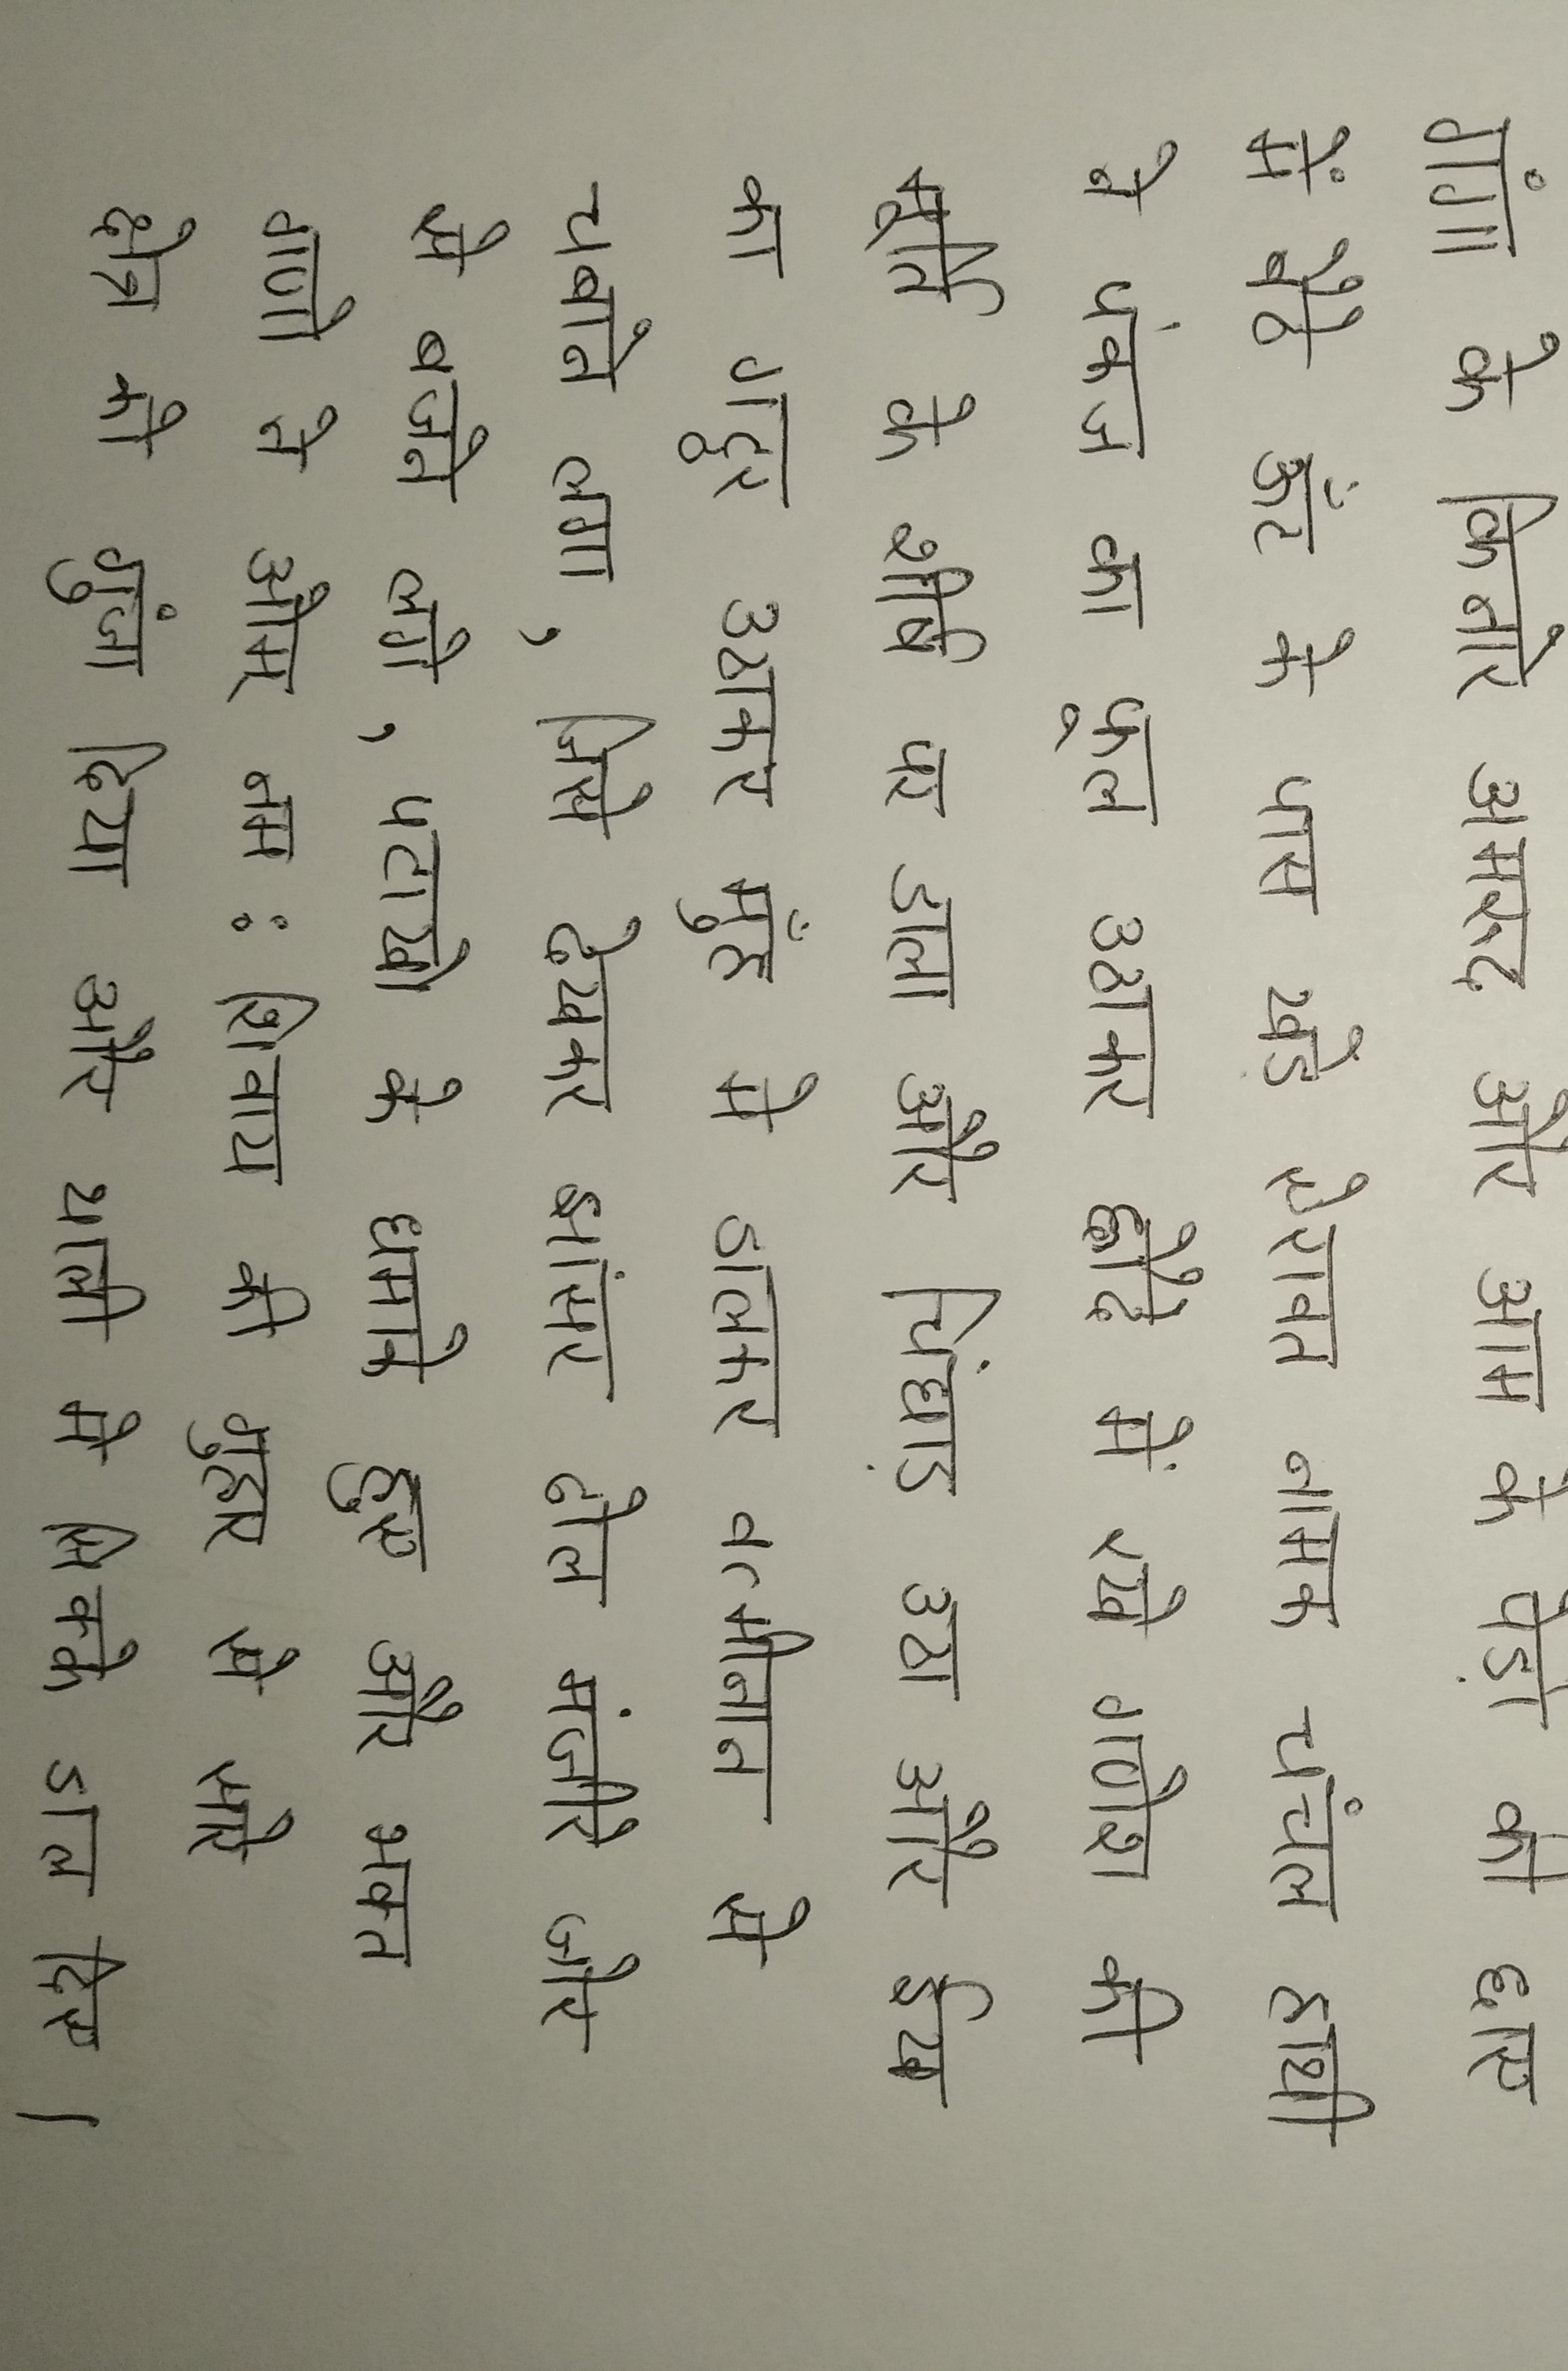 गंगा के किनारे अमरुद और आम के पेड़ो की छाए
में बैठे ऊँट के पास खड़े ऐरावत नामक चंचल हाथी
ने पंकज का फूल उठाकर हौदे में रखे गणेश की
मूर्ति के शीर्ष पर डाला और चिंघाड़ उठा और ईख
का गट्ठर उठाकर मुँह मे डालकर से
चबाने लगा, जिसे देखकर झांसर ढोल मंजीरे जोर
से बजने लगे, पटाखो के धमाके हुए और भक्त
गणो ने ओम् नम : शिवाय की गुहार से सारे
क्षेत्र को गुंजा दिया और थाली मे सिक्के डाल दिए।